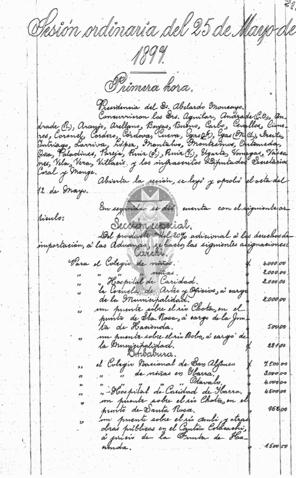 Sesión ordinaria del 25 de Mayo de
1899.
Primera hora.
Presidencia del Sr. Abelardo Moncayo.
Concurrieron los Srs. Aguilar, Andrade (L.), An-
drade (R.), Araujo, Arellano, Borja, Bueno, Carbo, Cevallos, Cisne-
ros, Coronel, Cordero, Córdova, Cueva, Egas
Intriago, Larriva, López, Montalvo, Montesinos,
Peza, Paladines, Pareja, Ruiz, Ugarte, Vargas, Váscо-
nes, Vela, Vera, Villacís y los infrascritos Diputados Secretarios
Coral y Monge.
Abierta la sesión, se leyó y aprobó el acta del
12 de Mayo.
En seguida se dió cuenta con el siguiente ar-
tículo:
Sección especial.
Del producto del 20% adicional á los derechos de
importación, á las Aduanas, se harán las siguientes asignaciones:
Carchi.
Para el Colegio de niños, " 2.000.00
" " " niñas. " 2.000.00
" " Hospital de Caridad. " 2.000.00
" la Escuela de Artes y Oficios, á cargo
de la Municipalidad. " 2.000.00
" un puente sobre el río Chota, en el
punto de Sta. Rosa, á cargo de la Jun-
ta de Hacienda. " 500.00
" un puente sobre el río á cargo de
la Municipalidad.
Imbabura.
" el Colegio Nacional de San Alfonso
" " " de niñas en Ibarra. " 2000.00
" " " Otavalo. " 4000.00
" " Hospital de Caridad de Ibarra. " 4000.00
" un puente sobre el río Chota, en el
punto de Santa Rosa.
" un puente sobre el río y otras
obras públicas del Cantón Cotacachi,
á juicio de la Junta de Ha-
cienda. " 1500.00